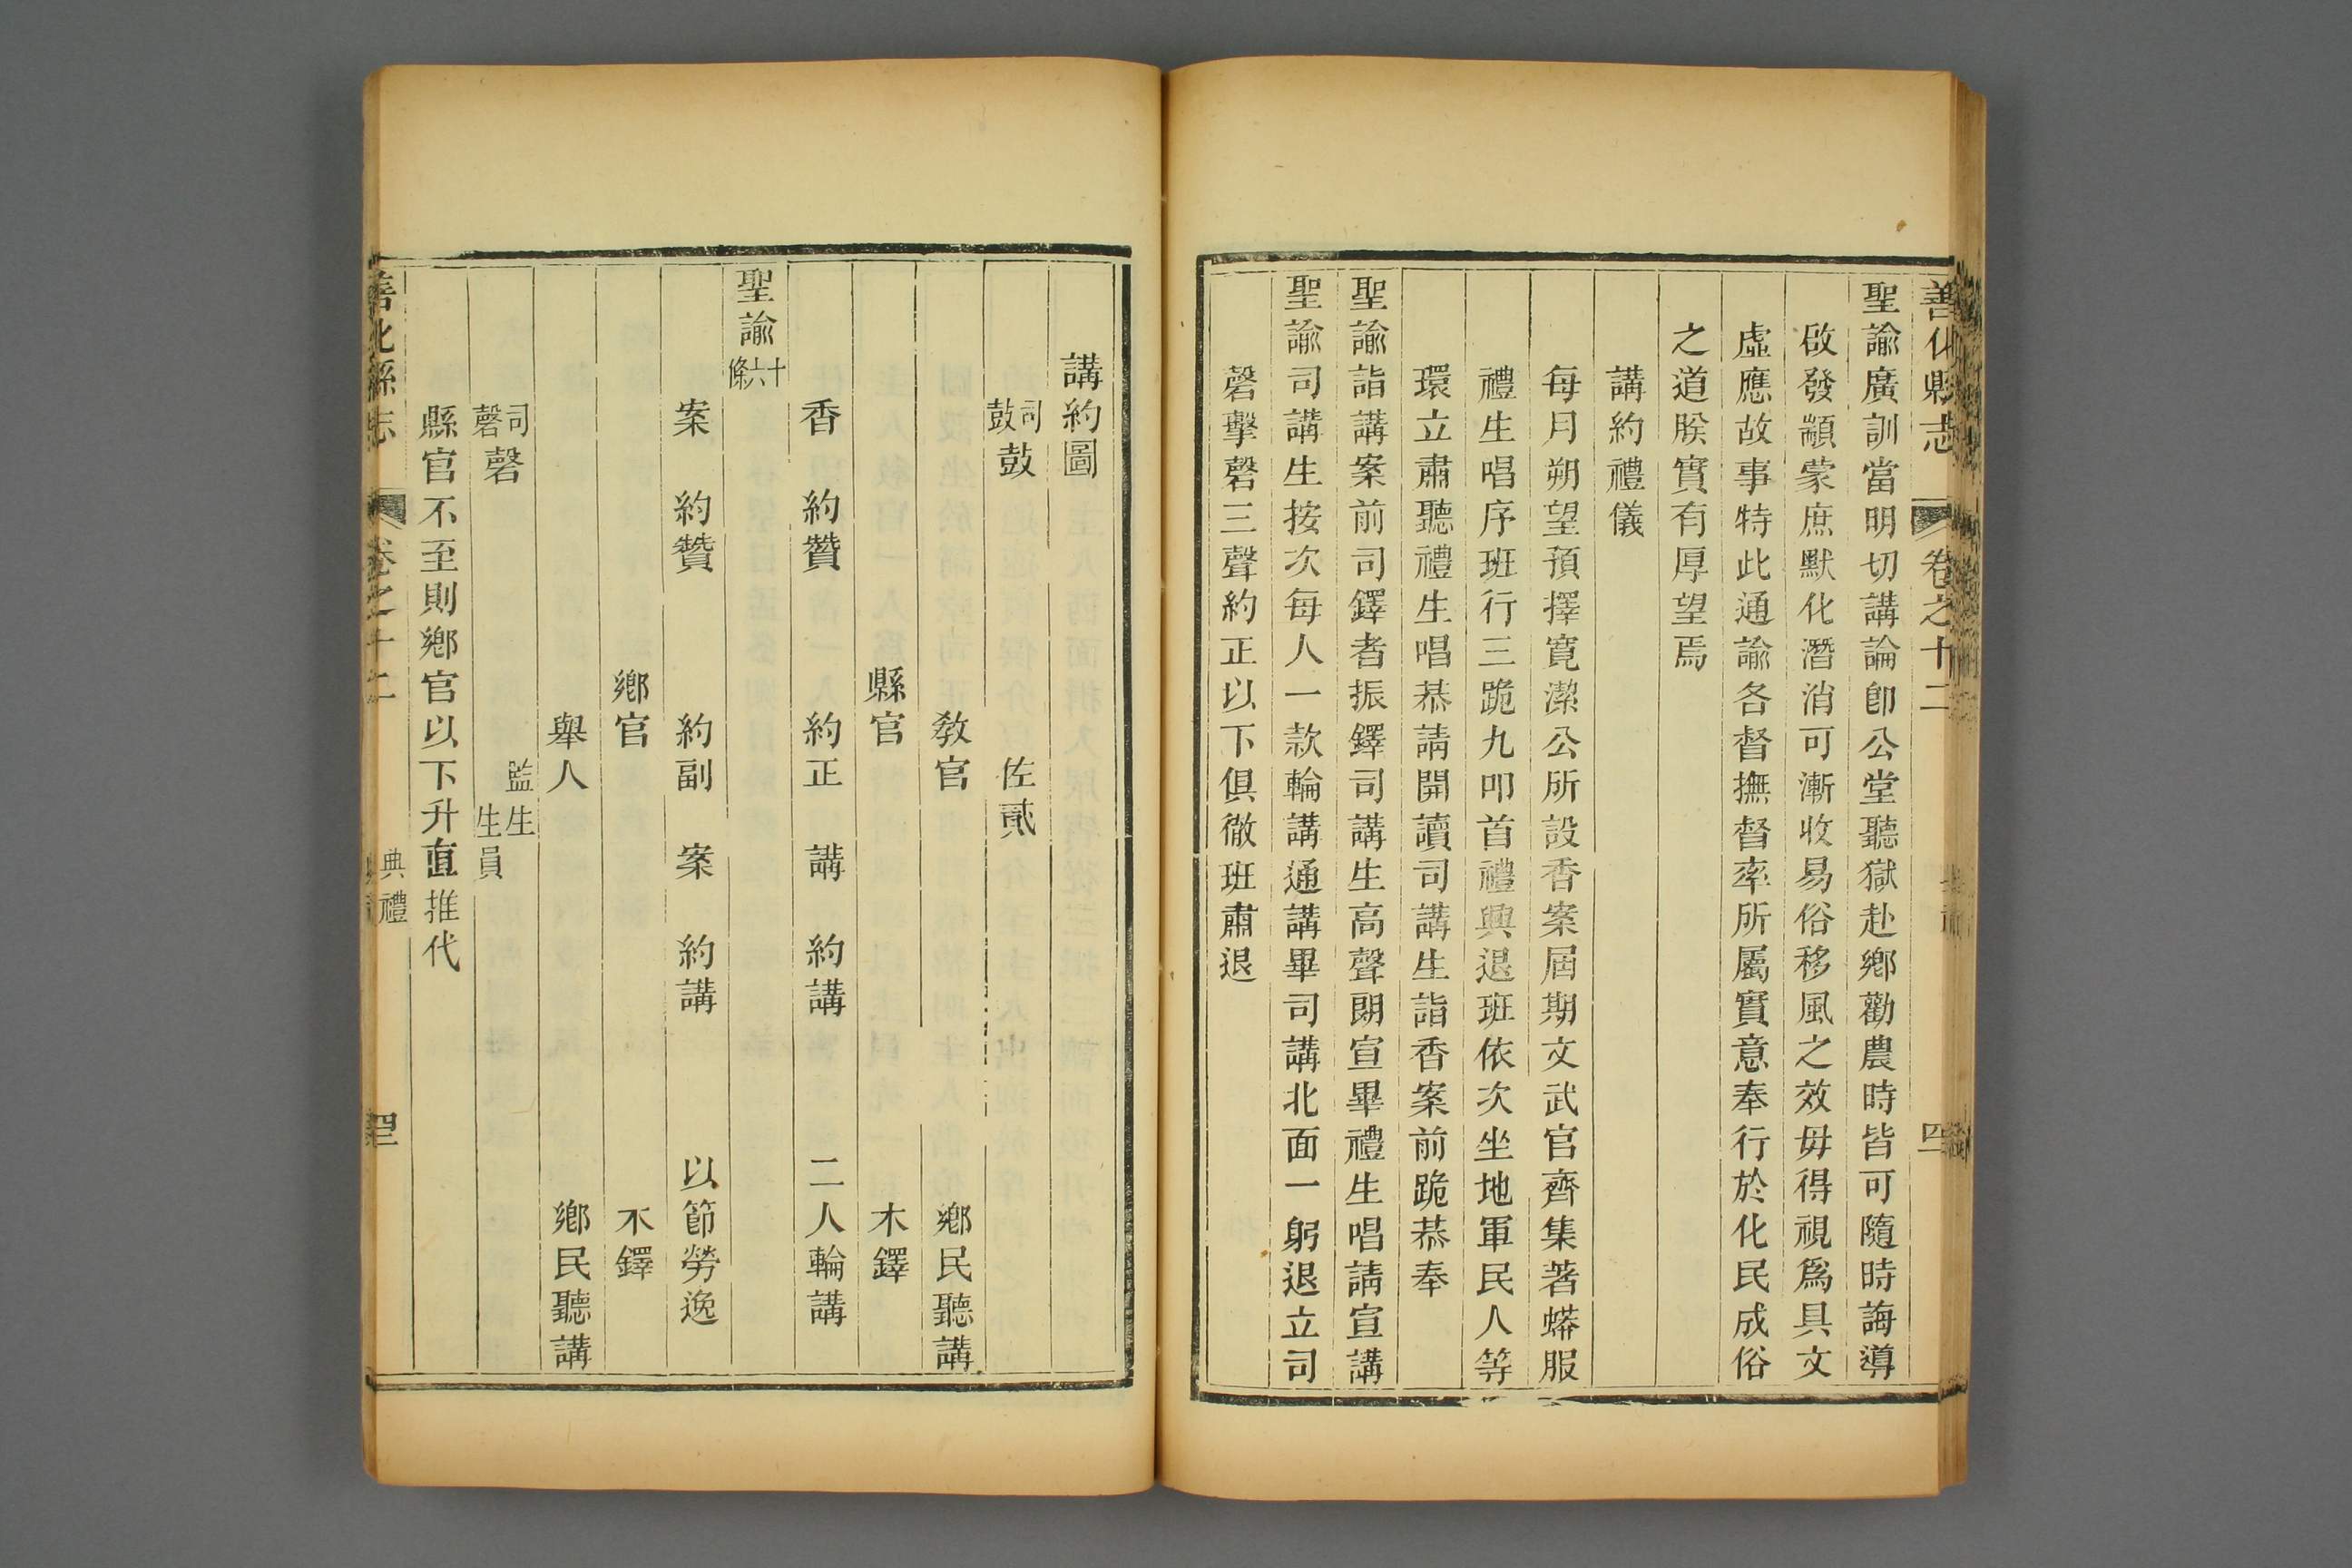 善化縣志
卷之十二
聖諭廣訓當明切講論卽公堂聽獄赴鄉勸農時皆可隨時誨導
啟發顓蒙庶默化潛消可漸收易俗移風之效毋得視爲具文
虛應故事特此通諭各督撫督率所屬實意奉行於化民成俗
之道朕實有厚望焉
講約禮儀
每月朔望預擇寬潔公所設香案屆期文武官齊集著蟒服
禮生唱序班行三跪九叩首禮興退班依次坐地軍民人等
環立肅聽禮生唱恭請開讀司講生詣香案前跪恭奉
聖諭詣講案前司鐸者振鐸司講生高聲朗宣畢禮生唱請宣講
聖諭司講生按次每人一款輪講通講畢司講北面一躬退立司
磬擊磬三聲約正以下俱徹班肅退
講約圖
司鼓 鼓 佐貳
教官 鄉民聽講
縣官 木鐸
香 約贊 約正 講 約講 二人輪講
聖諭十六條
案 約贊 約副 案 約講 以節勞逸
鄉官 木鐸
舉人 鄉民聽講
司磬 磬 監生 生員
縣官不至則鄉官以下升直推代
善化縣志
卷之十二
典禮